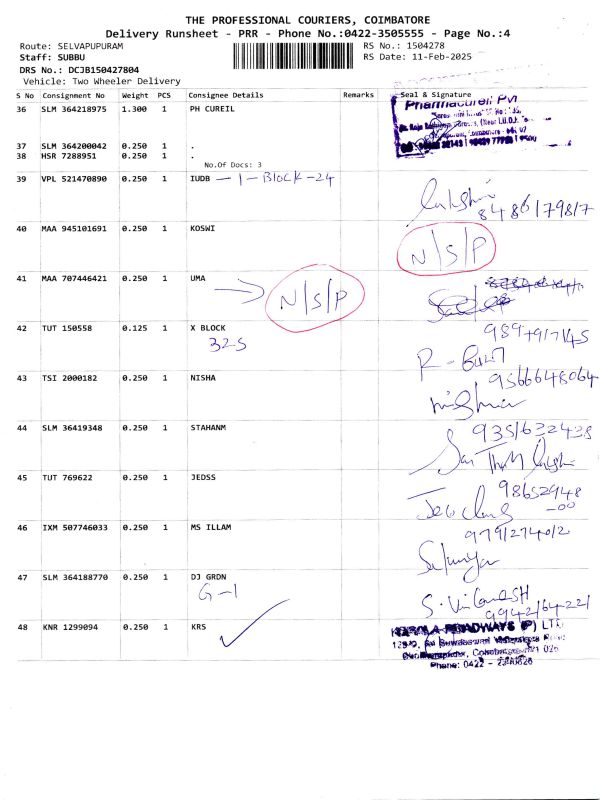 THE PROFESSIONAL COURIERS, COIMBATORE
Delivery Runsheet - PRR - Phone No.:0422-3505555 - Page No.:4
Route: SELVAPUPURAM RS No.: 1504278
Staff: SUBBU RS Date: 11-Feb-2025
DRS No.: DCJB150427804
Vehicle: Two Wheeler Delivery
S No Consignment No Weight PCS Consignee Details Remarks Seal & Signature
36 SLM 364218975 1.300 1 PH CUREIL
Pharmacureil Pvt
37 SLM 364200042 0.250 1 .
38 HSR 7288951 0.250 1 .
No.Of Docs: 3
39 VPL 521470890 0.250 1 IUDB - 1 - BLOCK - 24
8486179817
40 MAA 945101691 0.250 1 KOSWI
N/S/P
41 MAA 707446421 0.250 1 UMA
N/S/P
42 TUT 150558 0.125 1 X BLOCK
325
43 TSI 2000182 0.250 1 NISHA
9566648064
44 SLM 36419348 0.250 1 STAHANM
45 TUT 769622 0.250 1 JEDSS
98652948
-00
46 IXM 507746033 0.250 1 MS ILLAM
9791274012
47 SLM 364188770 0.250 1 DJ GRDN
G-1
9942164221
48 KNR 1299094 0.250 1 KRS
ROADWAYS (P) LTD
Phone: 0422 -